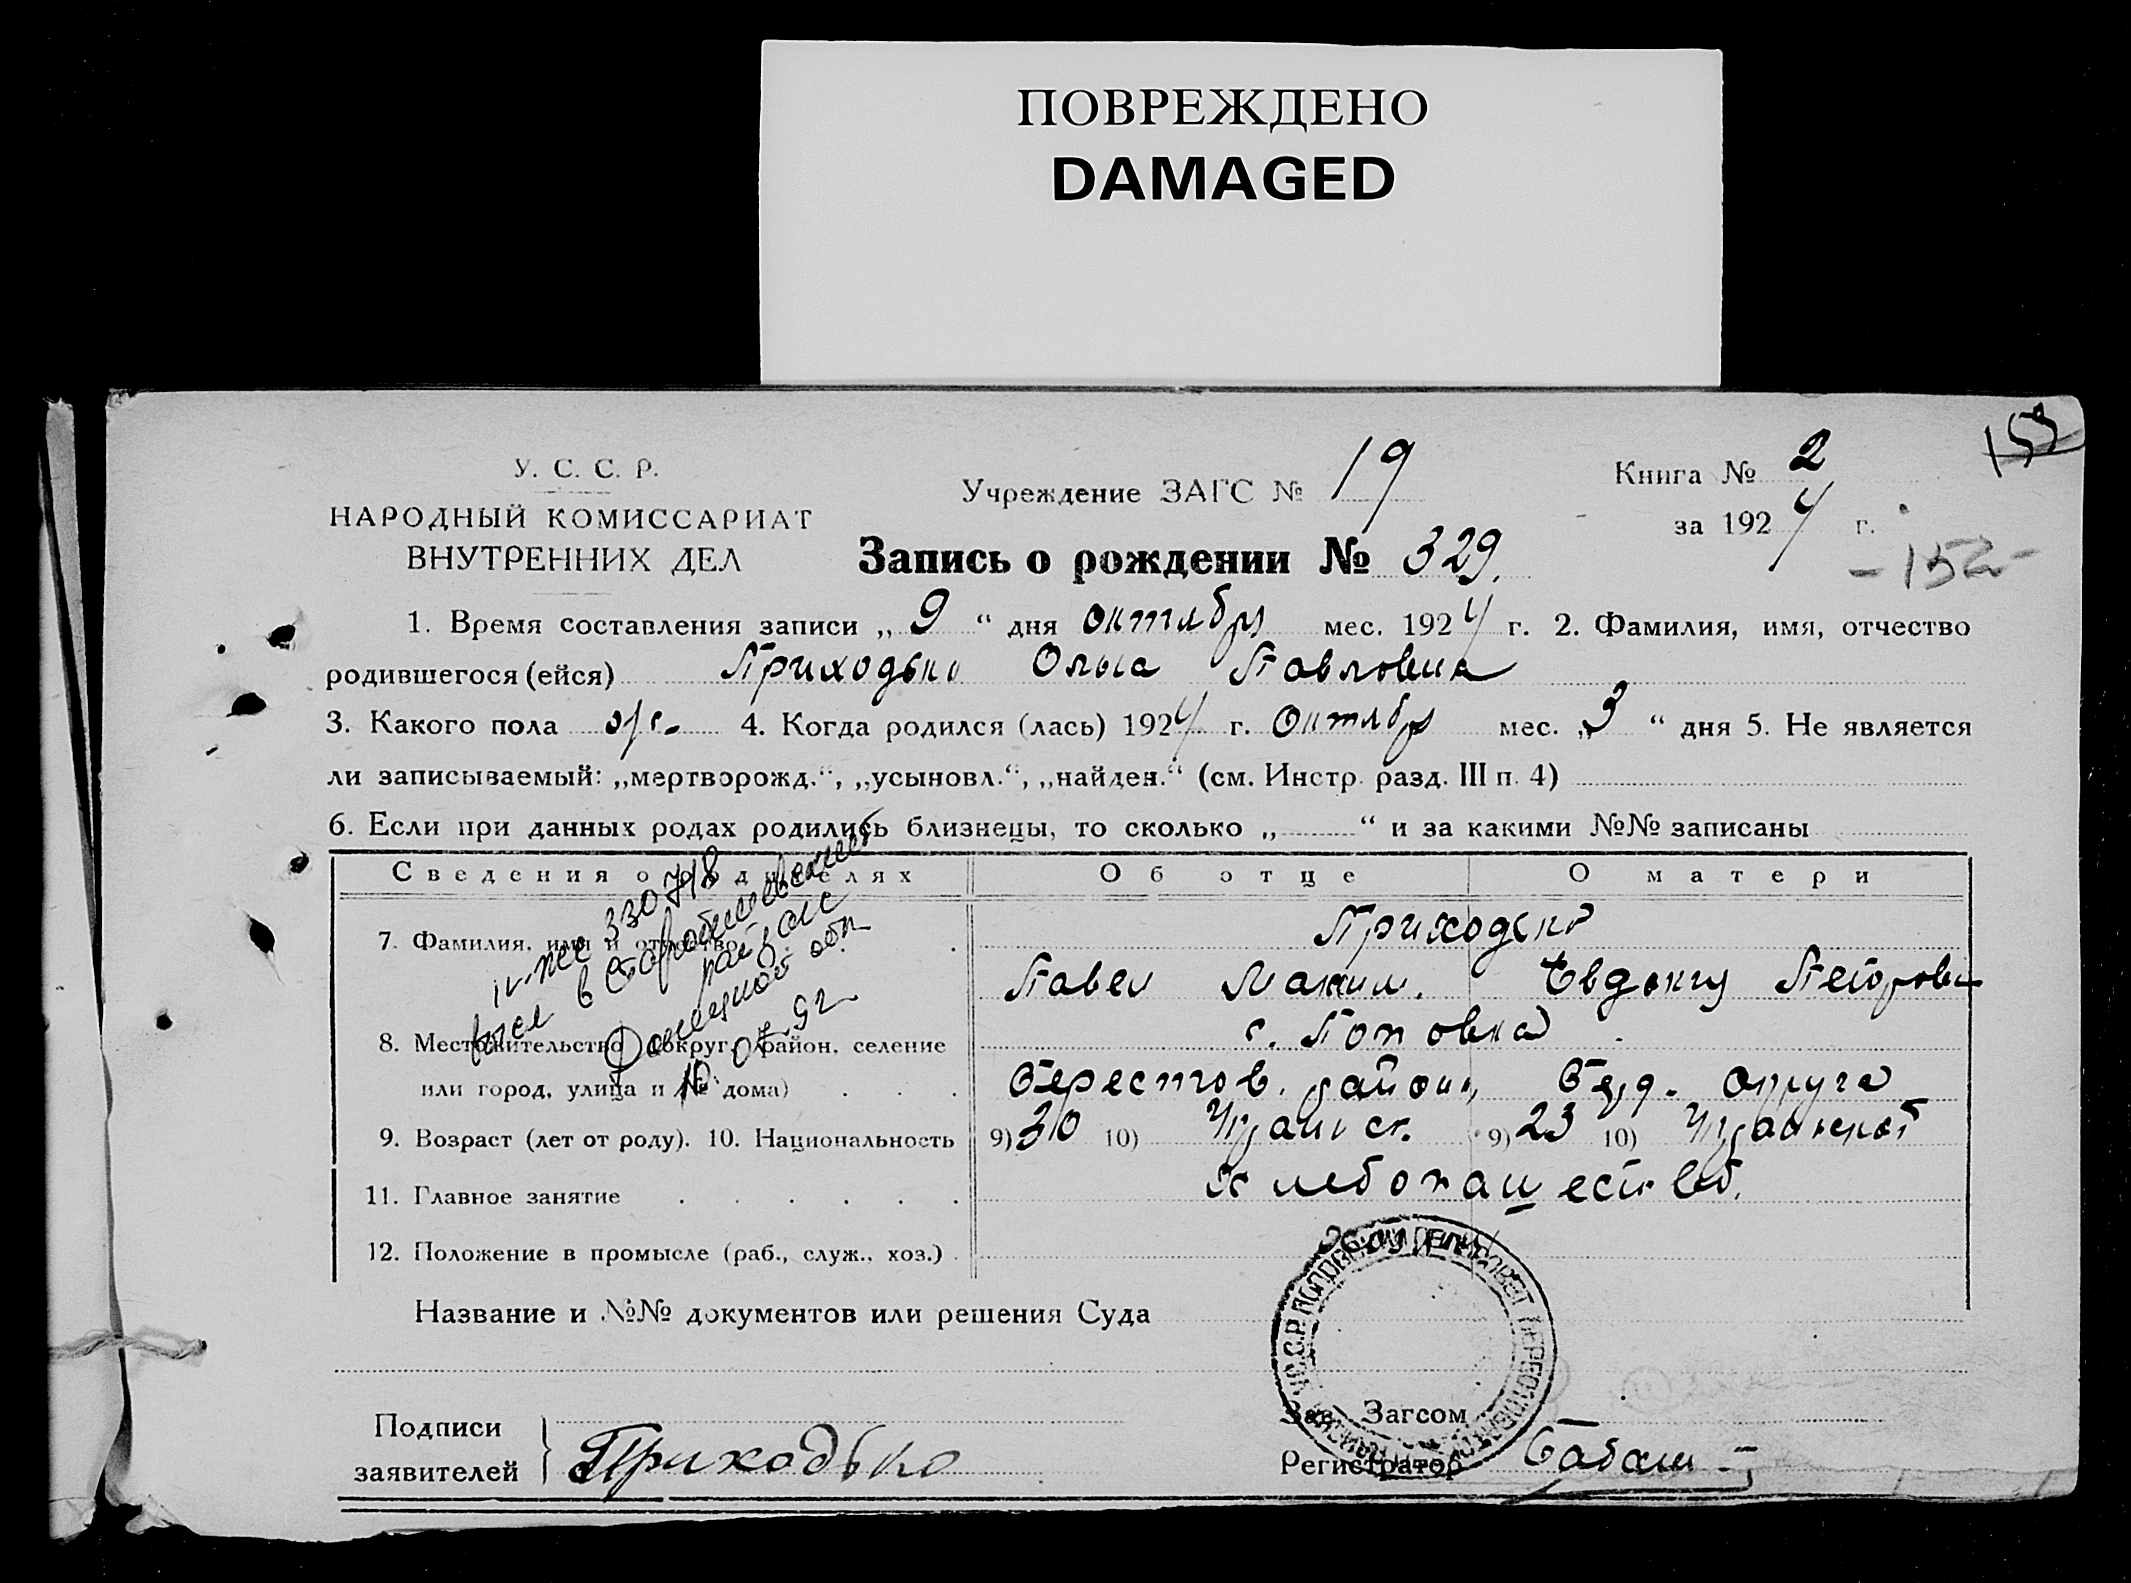 ПОВРЕЖДЕНО
DAMAGED
153
У. С. С. Р.
НАРОДНЫЙ КОМИССАРИАТ
ВНУТРЕННИХ ДЕЛ
Учреждение ЗАГС № 19
Книга № 2
за 1924 г.
-152-
Запись о рождении № 329.
1. Время составления записи „9“ дня октября мес. 1924 г. 2. Фамилия, имя, отчество
родившегося (ейся) Приходько Ольга Павловна
3. Какого пола ж. 4. Когда родился (лась) 1924 г. Октября мес. „3“ дня 5. Не является
ли записываемый: „мертворожд.“, „усыновл.“, „найден.“ (см. Инстр. разд. III п. 4)
6. Если при данных родах родились близнецы, то сколько „ “ и за какими №№ записаны
Сведения о родителях Об отце О матери
7. Фамилия, имя и отчество Приходько
Павел Максим. Евдокия Петровн
8. Местожительство (округ, район, селение с. Поповка
или город, улица и № дома) Берестов. район, Бахм. округа
9. Возраст (лет от роду). 10. Национальность 9) 30 10) Украинск. 9) 23 10) Украинской
11. Главное занятие Хлебопашество.
12. Положение в промысле (раб., служ., хоз.)
330718
в Старобешевский
райзагс
Донецкой обл.
10.07.92
Название и №№ документов или решения Суда
Подписи
заявителей Приходько
Зав. Загсом
Регистратор Бабаш